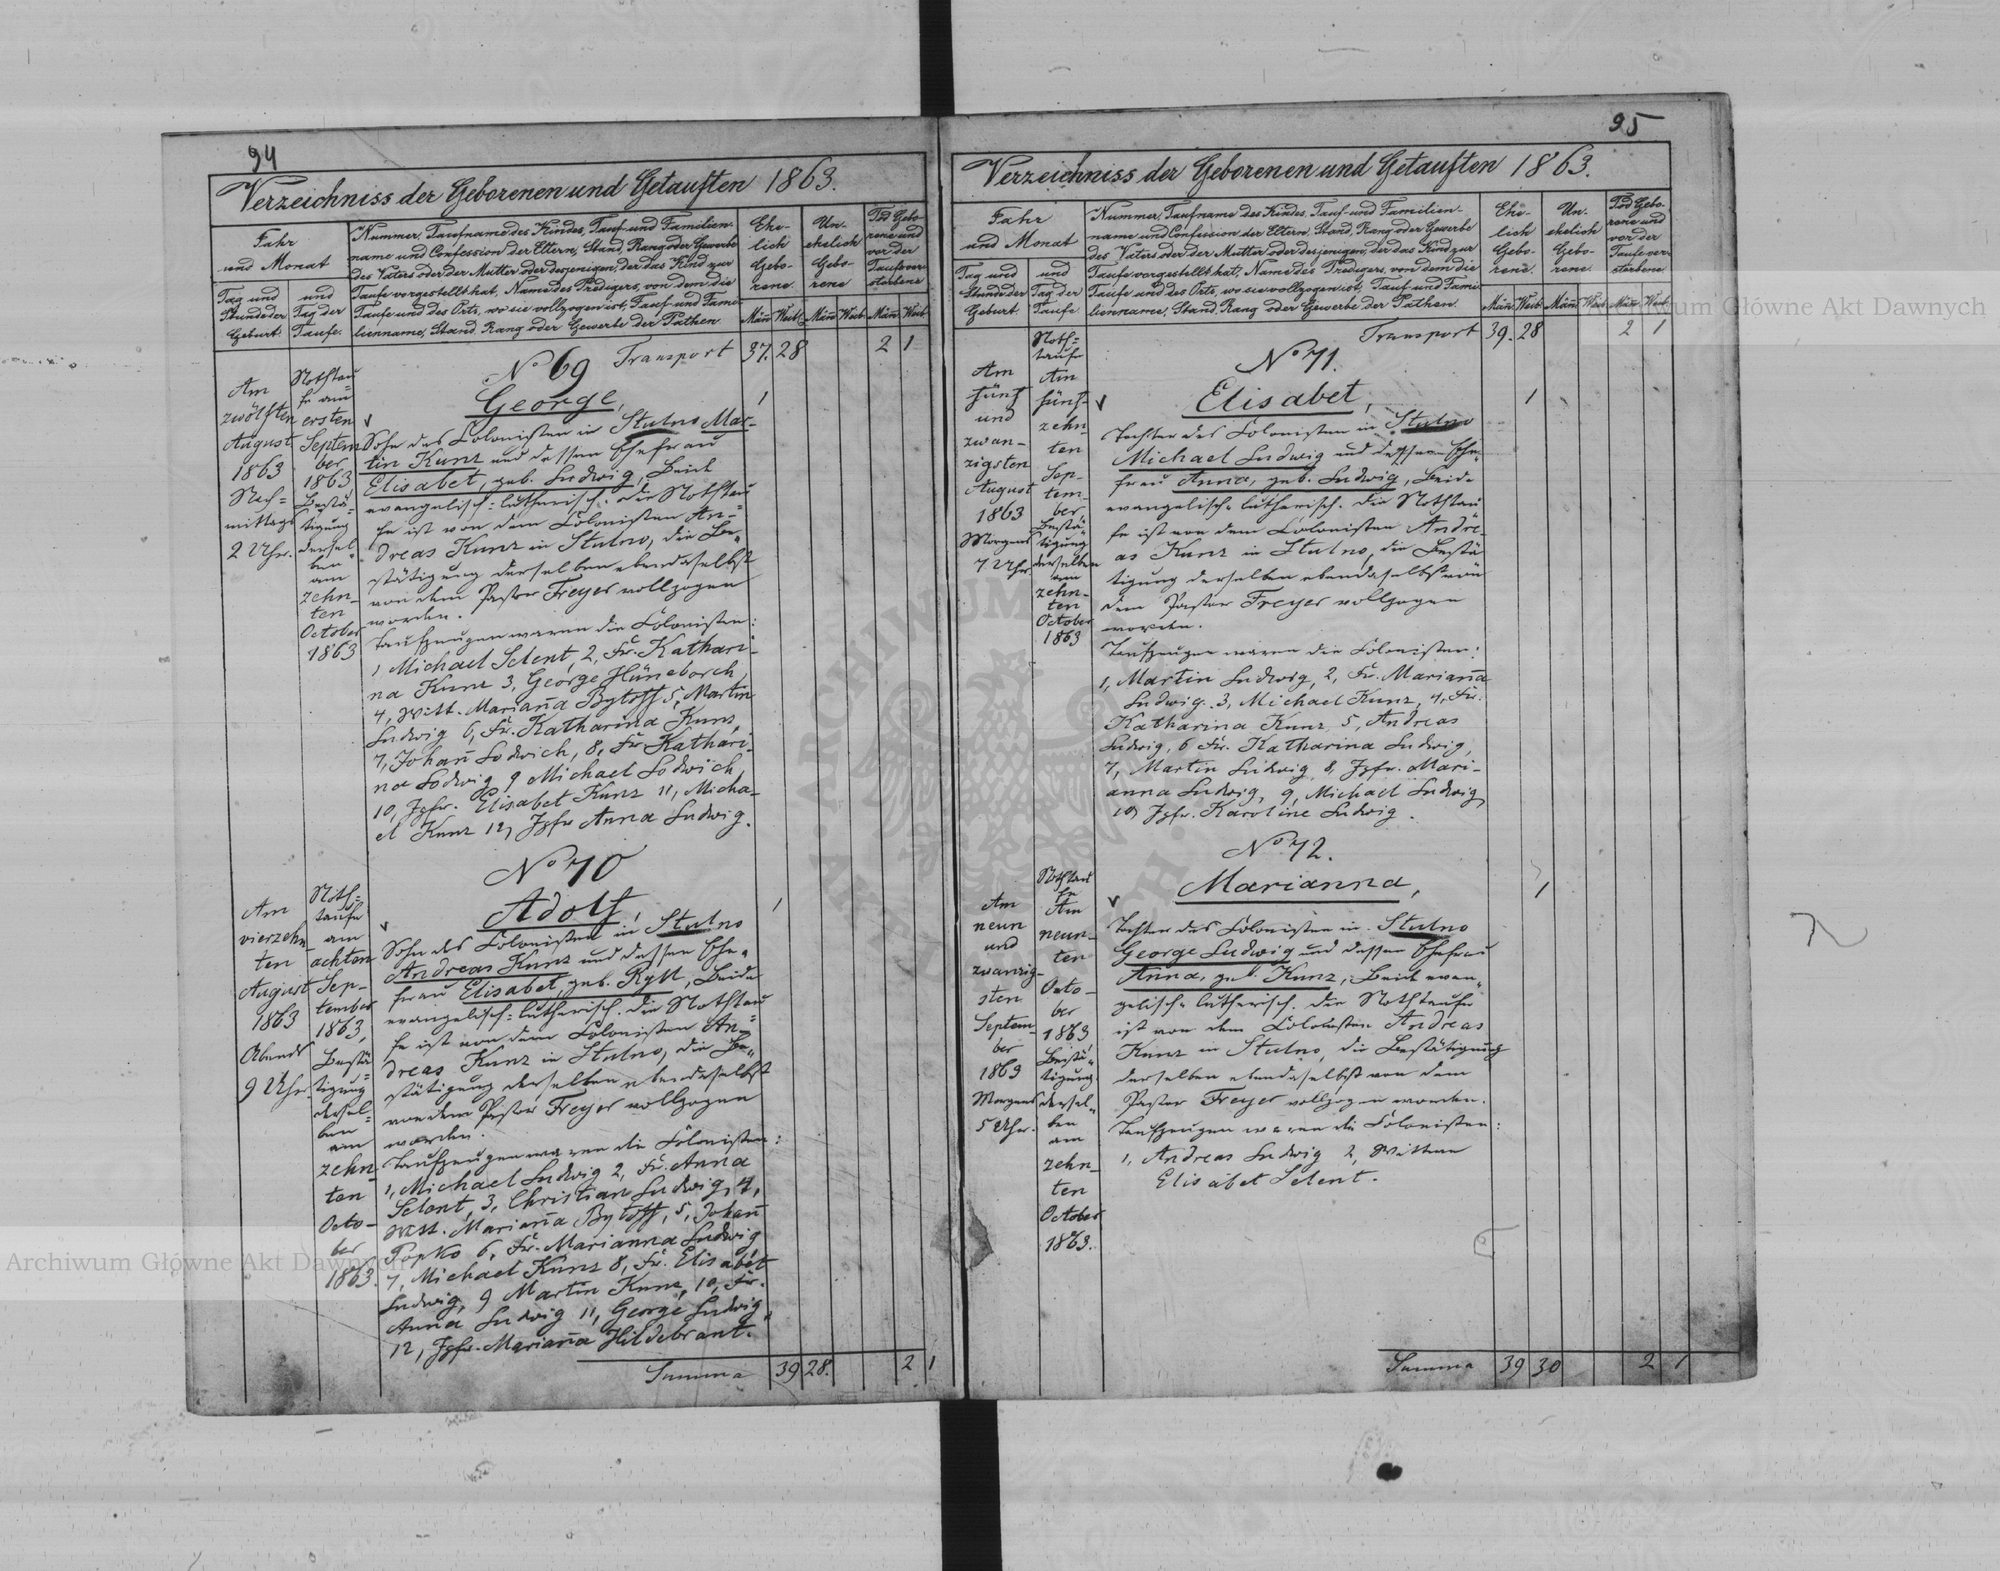 94
Verzeichniss der Geborenen und Getauften 1863.
Jahr
und Monat
Tag und
Stunde der
Geburt.
und
Tag der
Taufe.
Nummer, Taufname des Kindes, Tauf- und Familien-
name und Confession der Eltern, Stand, Rang oder Gewerbe
des Vaters oder der Mutter oder desjenigen, der das Kind zur
Taufe vorgestellt hat, Name des Predigers, von dem die
Taufe und des Orts, wo sie vollzogen ist, Tauf- und Fami-
lienname, Stand, Rang oder Gewerbe der Pathen
Ehe-
lich
Gebo-
rene.
Un-
ehelich
Gebo-
rene
Tod Gebo-
rene und
vor der
Taufe ver-
storbene
Män. Weib. Män. Weib. Män. Weib.
Transport 37. 28 2 1
Am
zwölften
August
1863
Nach=
mittags
2 Uhr.
Nothtau
fe am
ersten
Septem
ber
1863
Bestä=
tigung
dersel=
ben
am
zehn-
ten
October
1863
No 69
George, 1
Sohn des Colonisten in Stulno Mar-
tin Kunz und dessen Ehefrau
Elisabet, geb. Ludwig, Beide
evangelisch=lutherisch. Die Nothtau
fe ist von dem Colonisten An=
dreas Kunz in Stulno, die Be=
stätigung derselben ebendaselbst
von dem Pastor Freyer vollzogen
worden.
Taufzeugen waren die Colonisten:
1, Michael Selent, 2, Fr. Kathari-
na Kunz 3, George Hüneborch
4, Witt. Marianna Bytoff 5, Martin
Ludwig 6, Fr. Katharina Kunz,
7, Johann Lodwich, 8, Fr Kathari-
na Lodwig 9 Michael Lodwich,
10, Jgfr. Elisabet Kunz 11, Micha-
el Kunz 12, Jgfr Anna Ludwig.
Am
vierzehn
ten
August
1863
Abends
9 Uhr.
Noth=
taufe
am
achten
Sep-
tember
1863,
Bestä
tigung
dersel=
ben
am
zehn-
ten
Octo-
ber
1863.
No 70
Adolf, 1
Sohn des Colonisten in Stulno
Andreas Kunz und dessen Ehe=
frau Elisabet, geb. Rytt, Beide
evangelisch=lutherisch. Die Nothtau
fe ist von dem Colonisten An=
dreas Kunz in Stulno, die Be=
stätigung derselben ebendaselbst
von dem Pastor Freyer vollzogen
worden.
Taufzeugen waren die Colonisten:
1, Michael Ludwig 2, Fr. Anna
Selent, 3, Christian Ludwig, 4,
Witt. Marianna Bytoff, 5, Johann
Popko 6, Fr. Marianna Ludwig
7, Michael Kunz 8, Fr. Elisabet
Ludwig, 9 Martin Kunz, 10, Fr.
Anna Ludwig 11, George Ludwig,
12, Jgfr. Marianna Hildebrant.
Summa 39 28. 2 1
95
Verzeichniss der Geborenen und Getauften 1863.
Jahr
und Monat
Tag und
Stunde der
Geburt.
und
Tag der
Taufe
Nummer, Taufname des Kindes, Tauf- und Familien-
name und Confession der Eltern, Stand, Rang oder Gewerbe
des Vaters oder der Mutter oder desjenigen, der das Kind zur
Taufe vorgestellt hat, Name des Predigers, von dem die
Taufe und des Orts, wo sie vollzogen ist, Tauf- und Fami-
lienname, Stand, Rang oder Gewerbe der Pathen.
Ehe-
lich
Gebo-
rene.
Un-
ehelich
Gebo-
rene.
Tod Gebo-
rene und
vor der
Taufe ver-
storbene
Män. Weib. Män. Weib. Män. Weib.
Transport 39. 28 2 1
Am
fünf
und
zwan-
zigsten
August
1863
Morgens
7 Uhr
Noth=
taufe
Am
fünf-
zehn-
ten
Sep-
tem-
ber
Bestä=
tigung
derselben
am
zehn-
ten
October
1863
No 71.
Elisabet, 1
Tochter des Colonisten in Stulno
Michael Ludwig und dessen Ehe=
frau Anna, geb. Ludwig, Beide
evangelisch=lutherisch. Die Nothtau
fe ist von dem Colonisten Andre-
as Kunz in Stulno, die Bestä
tigung derselben ebendaselbst von
dem Pastor Freyer vollzogen
worden.
Taufzeugen waren die Colonisten:
1, Martin Ludwig, 2, Fr. Marianna
Ludwig. 3, Michael Kunz, 4, Fr.
Katharina Kunz, 5, Andreas
Ludwig, 6 Fr. Katharina Ludwig,
7, Martin Ludwig 8, Jgfr. Mari-
anna Ludwig, 9, Michael Ludwig,
10, Jgfr. Karoline Ludwig.
Am
neun
und
zwanzig-
sten
Septem-
ber
1863
Morgens
5 Uhr.
Nothtau
fe
Am
neun-
ten
Octo-
ber
1863
Bestä=
tigung
dersel=
ben
am
zehn-
ten
October
1863.
No 72.
Marianna, 1
Tochter des Colonisten in Stulno
George Ludwig und dessen Ehefrau
Anna, geb. Kunz, Beide evan=
gelisch=lutherisch. Die Nothtaufe
ist von dem Colonisten Andreas
Kunz in Stulno, die Bestätigung
derselben ebendaselbst von dem
Pastor Freyer vollzogen worden.
Taufzeugen waren die Colonisten:
1, Andreas Ludwig 2, Wittwe
Elisabet Selent.
Summa 39 30 2 1
Archiwum Główne Akt Dawnych
Archiwum Główne Akt Dawnych